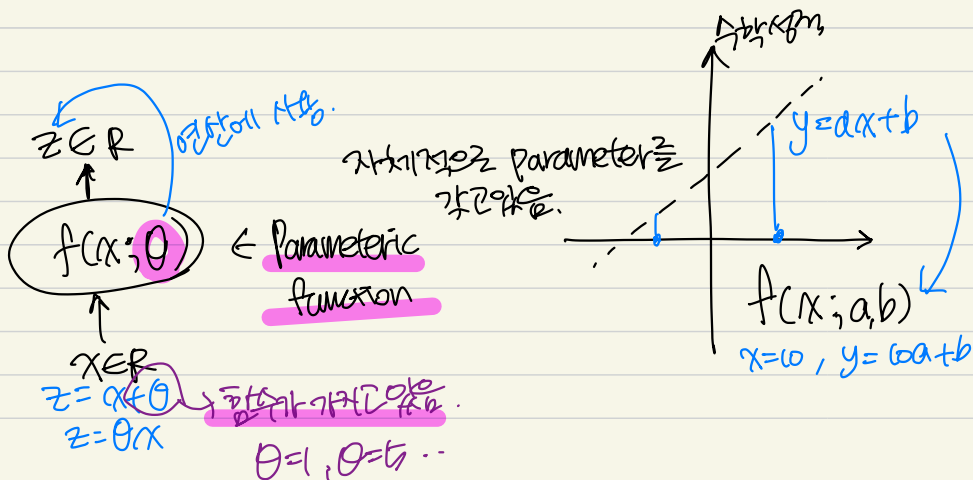 z∈R
연산에 사용.
f(x;θ)
← Parameteric
function
x∈R
z=x+θ
z=θx
함수가 가지고 있음.
θ=1, θ=5 ..
자체적으로 parameter를
갖고있음.
수학성적
y=ax+b
f(x;a,b)
x=10, y=10a+b